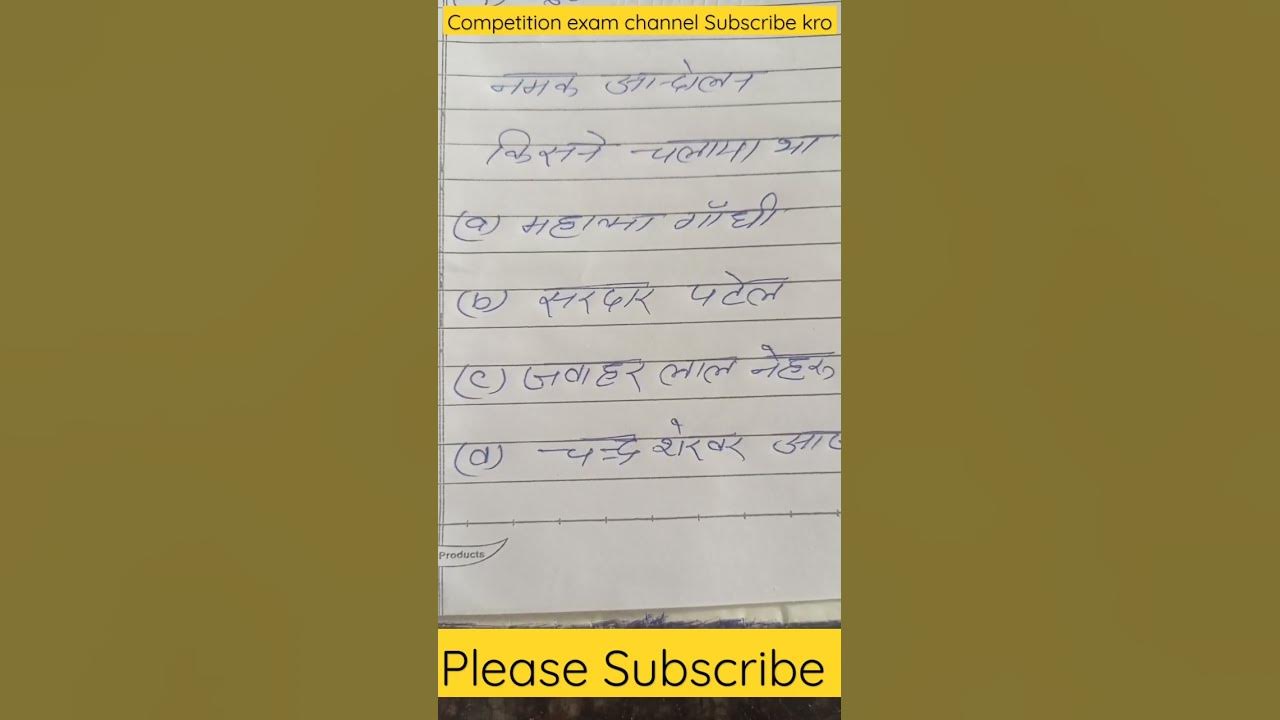 Competition exam channel Subscribe kro
नमक आन्दोलन
किसने चलाया था
(a) महात्मा गाँधी
(b) सरदार पटेल
(c) जवाहर लाल नेहरू
(d) चन्द्र शेखर
Products
Please Subscribe